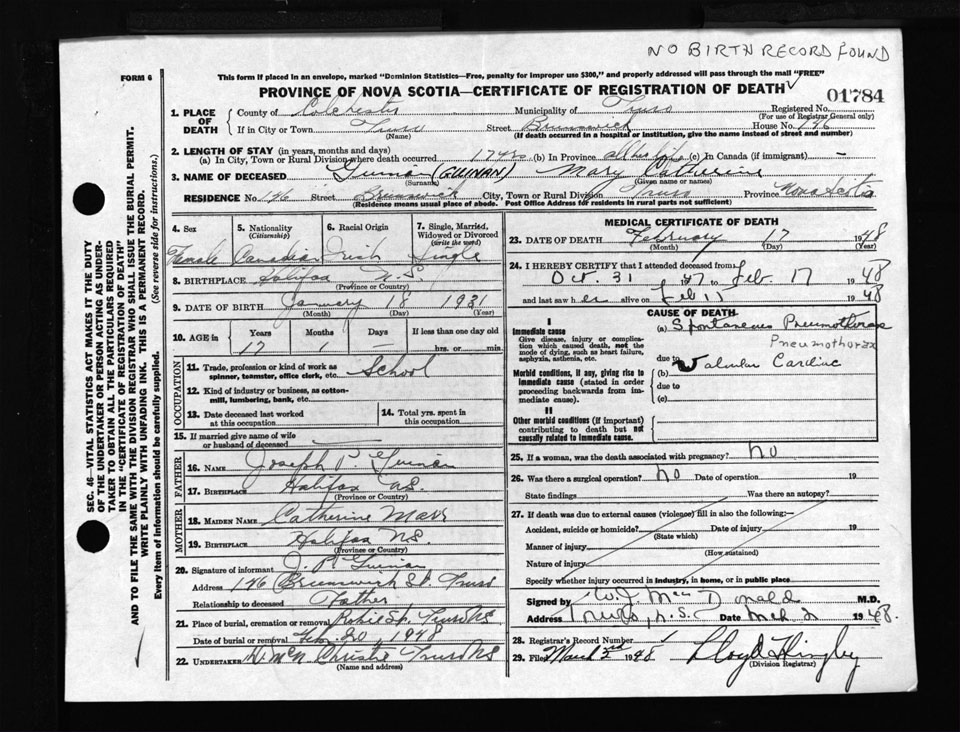 NO BIRTH RECORD FOUND
FORM 6
This form if placed in an envelope, marked "Dominion Statistics—Free, penalty for improper use $300," and properly addressed will pass through the mail "FREE"
PROVINCE OF NOVA SCOTIA—CERTIFICATE OF REGISTRATION OF DEATH
01784
1. PLACE OF DEATH
County of Colchester Municipality of Truro Registered No.
(For use of Registrar General only)
If in City or Town Truro Street Brunswick House No. 146
(Name) (If death occurred in a hospital or institution, give the name instead of street and number)
2. LENGTH OF STAY (in years, months and days)
(a) In City, Town or Rural Division where death occurred 17 yrs (b) In Province all her life (c) In Canada (if immigrant) —
3. NAME OF DECEASED Guinan (GUINAN) Mary Catherine
(Surname) (Given name or names)
RESIDENCE No. 146 Street Brunswick City, Town or Rural Division Truro Province Nova Scotia
(Residence means usual place of abode. Post Office Address for residents in rural parts not sufficient)
4. Sex
Female
5. Nationality
(Citizenship)
Canadian
6. Racial Origin
Irish
7. Single, Married, Widowed or Divorced
(write the word)
Single
8. BIRTHPLACE Halifax N.S.
(Province or Country)
9. DATE OF BIRTH January 18 1931
(Month) (Day) (Year)
10. AGE in Years Months Days If less than one day old
17 1 — hrs. or min.
OCCUPATION
11. Trade, profession or kind of work as spinner, teamster, office clerk, etc. School
12. Kind of industry or business, as cotton-mill, lumbering, bank, etc.
13. Date deceased last worked at this occupation
14. Total yrs. spent in this occupation
15. If married give name of wife or husband of deceased
FATHER
16. NAME Joseph P. Guinan
17. BIRTHPLACE Halifax NS.
(Province or Country)
MOTHER
18. MAIDEN NAME Catherine Marr
19. BIRTHPLACE Halifax NS.
(Province or Country)
20. Signature of informant J. P. Guinan
Address 146 Brunswick St. Truro
Relationship to deceased Father
21. Place of burial, cremation or removal Robie St. Truro NS
Date of burial or removal Feb. 20, 1948
22. UNDERTAKER Christie Truro NS
(Name and address)
MEDICAL CERTIFICATE OF DEATH
23. DATE OF DEATH February 17 1948
(Month) (Day) (Year)
24. I HEREBY CERTIFY that I attended deceased from
Oct. 31 1947 to Feb. 17 1948
and last saw her alive on Feb 11 1948
CAUSE OF DEATH
I
Immediate cause
Give disease, injury or complication which caused death, not the mode of dying, such as heart failure, asphyxia, asthenia, etc.
(a) Spontaneous Pneumothorax
Pneumothorax
due to
Morbid conditions, if any, giving rise to immediate cause (stated in order proceeding backwards from immediate cause).
(b) Valvular Cardiac
due to
(c)
II
Other morbid conditions (if important) contributing to death but not causally related to immediate cause.
25. If a woman, was the death associated with pregnancy? no
26. Was there a surgical operation? no Date of operation 19
State findings Was there an autopsy?
27. If death was due to external causes (violence) fill in also the following:—
Accident, suicide or homicide? Date of injury 19
(State which)
Manner of injury
(How sustained)
Nature of injury
Specify whether injury occurred in industry, in home, or in public place
Signed by W.J. MacDonald M.D.
Address Truro, N.S. Date Mch 2 1948.
28. Registrar's Record Number 1
29. Filed March 3rd 1948 Lloyd
(Division Registrar)
SEC. 46—VITAL STATISTICS ACT MAKES IT THE DUTY OF THE UNDERTAKER OR PERSON ACTING AS UNDERTAKER TO OBTAIN ALL THE PARTICULARS REQUIRED IN THE "CERTIFICATE OF REGISTRATION OF DEATH" AND TO FILE THE SAME WITH THE DIVISION REGISTRAR WHO SHALL ISSUE THE BURIAL PERMIT.
WRITE PLAINLY WITH UNFADING INK. THIS IS A PERMANENT RECORD.
Every item of information should be carefully supplied. (See reverse side for instructions.)